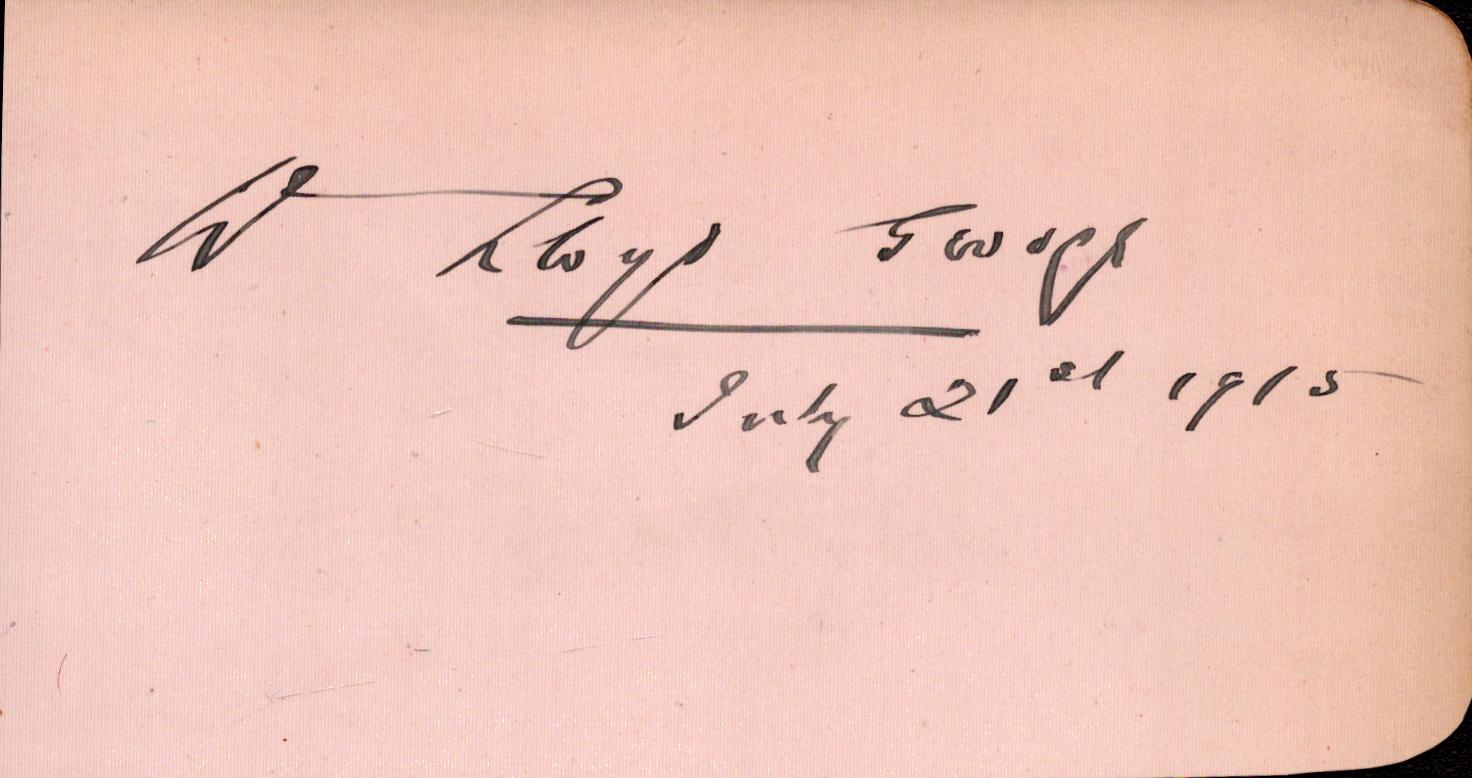 W Lloyd Gough
July 21st 1915